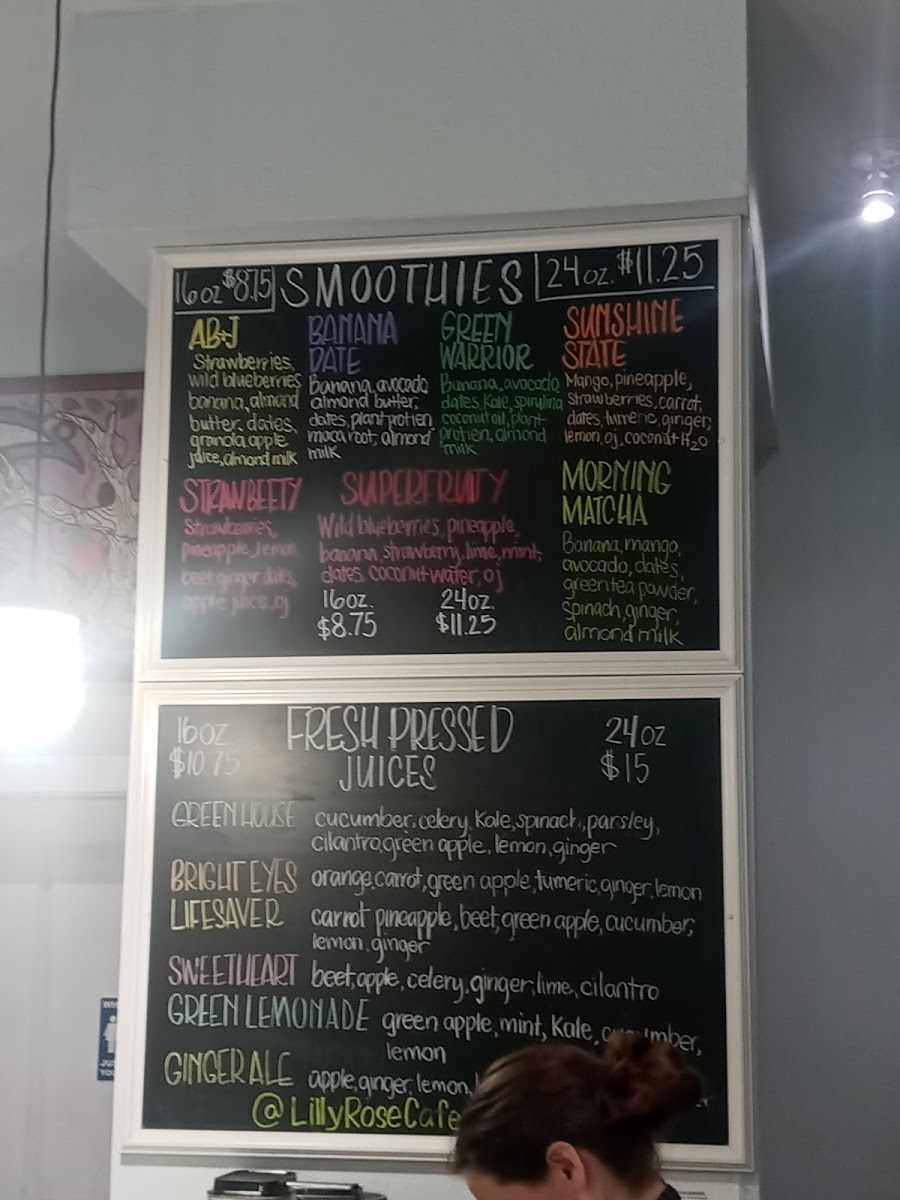 16oz $8.75 SMOOTHIES 24oz. $11.25
AB+J
Strawberries,
wild blueberries
banana, almond
butter, dates,
granola, apple
juice, almond milk
BANANA
DATE
Banana, avocado
almond butter,
dates, plant protien
maca root, almond
milk
GREEN
WARRIOR
Banana, avocado,
dates, Kale, spirulina
coconut oil, plant
protien, almond
milk
SUNSHINE
STATE
Mango, pineapple,
strawberries, carrot,
dates, tumeric, ginger,
lemon, oj, coconut H2O
STRAWBEETY
Strawberries,
pineapple, lemon
beet ginger dates,
apple juice, oj
SUPERFRUITY
Wild blueberries, pineapple,
banana, strawberry, lime, mint,
dates, coconut water, oj
16oz. 24oz.
$8.75 $11.25
MORNING
MATCHA
Banana, mango,
avocado, dates,
green tea powder,
spinach, ginger,
almond milk
16oz FRESH PRESSED 24oz
$10.75 JUICES $15
GREEN HOUSE cucumber, celery, Kale, spinach, parsley,
cilantro, green apple, lemon, ginger
BRIGHT EYES orange, carrot, green apple, tumeric, ginger, lemon
LIFESAVER carrot pineapple, beet, green apple, cucumber,
lemon, ginger
SWEETHEART beet, apple, celery, ginger, lime, cilantro
GREEN LEMONADE green apple, mint, Kale, cucumber,
lemon
GINGER ALE apple, ginger, lemon,
@LillyRoseCafe